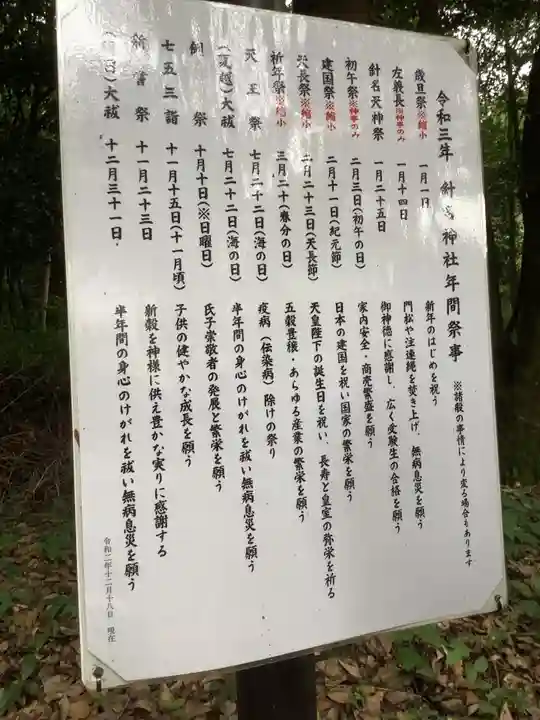 令和三年 針名神社年間祭事 ※諸般の事情により変る場合もあります
歳旦祭※縮小 一月一日 新年のはじめを祝う
左義長※神事のみ 一月十四日 門松や注連縄を焚き上げ、無病息災を願う
針名天神祭 一月二十五日 御神徳に感謝し、広く受験生の合格を願う
初午祭※神事のみ 二月三日(初午の日) 家内安全・商売繁盛を願う
建国祭※縮小 二月十一日(紀元節) 日本の建国を祝い国家の繁栄を願う
天長祭※縮小 二月二十三日(天長節) 天皇陛下の誕生日を祝い、長寿と皇室の弥栄を祈る
祈年祭※縮小 三月二十日(春分の日) 五穀豊穣・あらゆる産業の繁栄を願う
天王祭 七月二十二日(海の日) 疫病(伝染病)除けの祭り
(夏越)大祓 七月二十二日(海の日) 半年間の身心のけがれを祓い無病息災を願う
例祭 十月十日(※日曜日) 氏子崇敬者の発展と繁栄を願う
七五三詣 十一月十五日(十一月頃) 子供の健やかな成長を願う
新嘗祭 十一月二十三日 新穀を神様に供え豊かな実りに感謝する
大祓 十二月三十一日 半年間の身心のけがれを祓い無病息災を願う
令和二年十二月十八日 現在